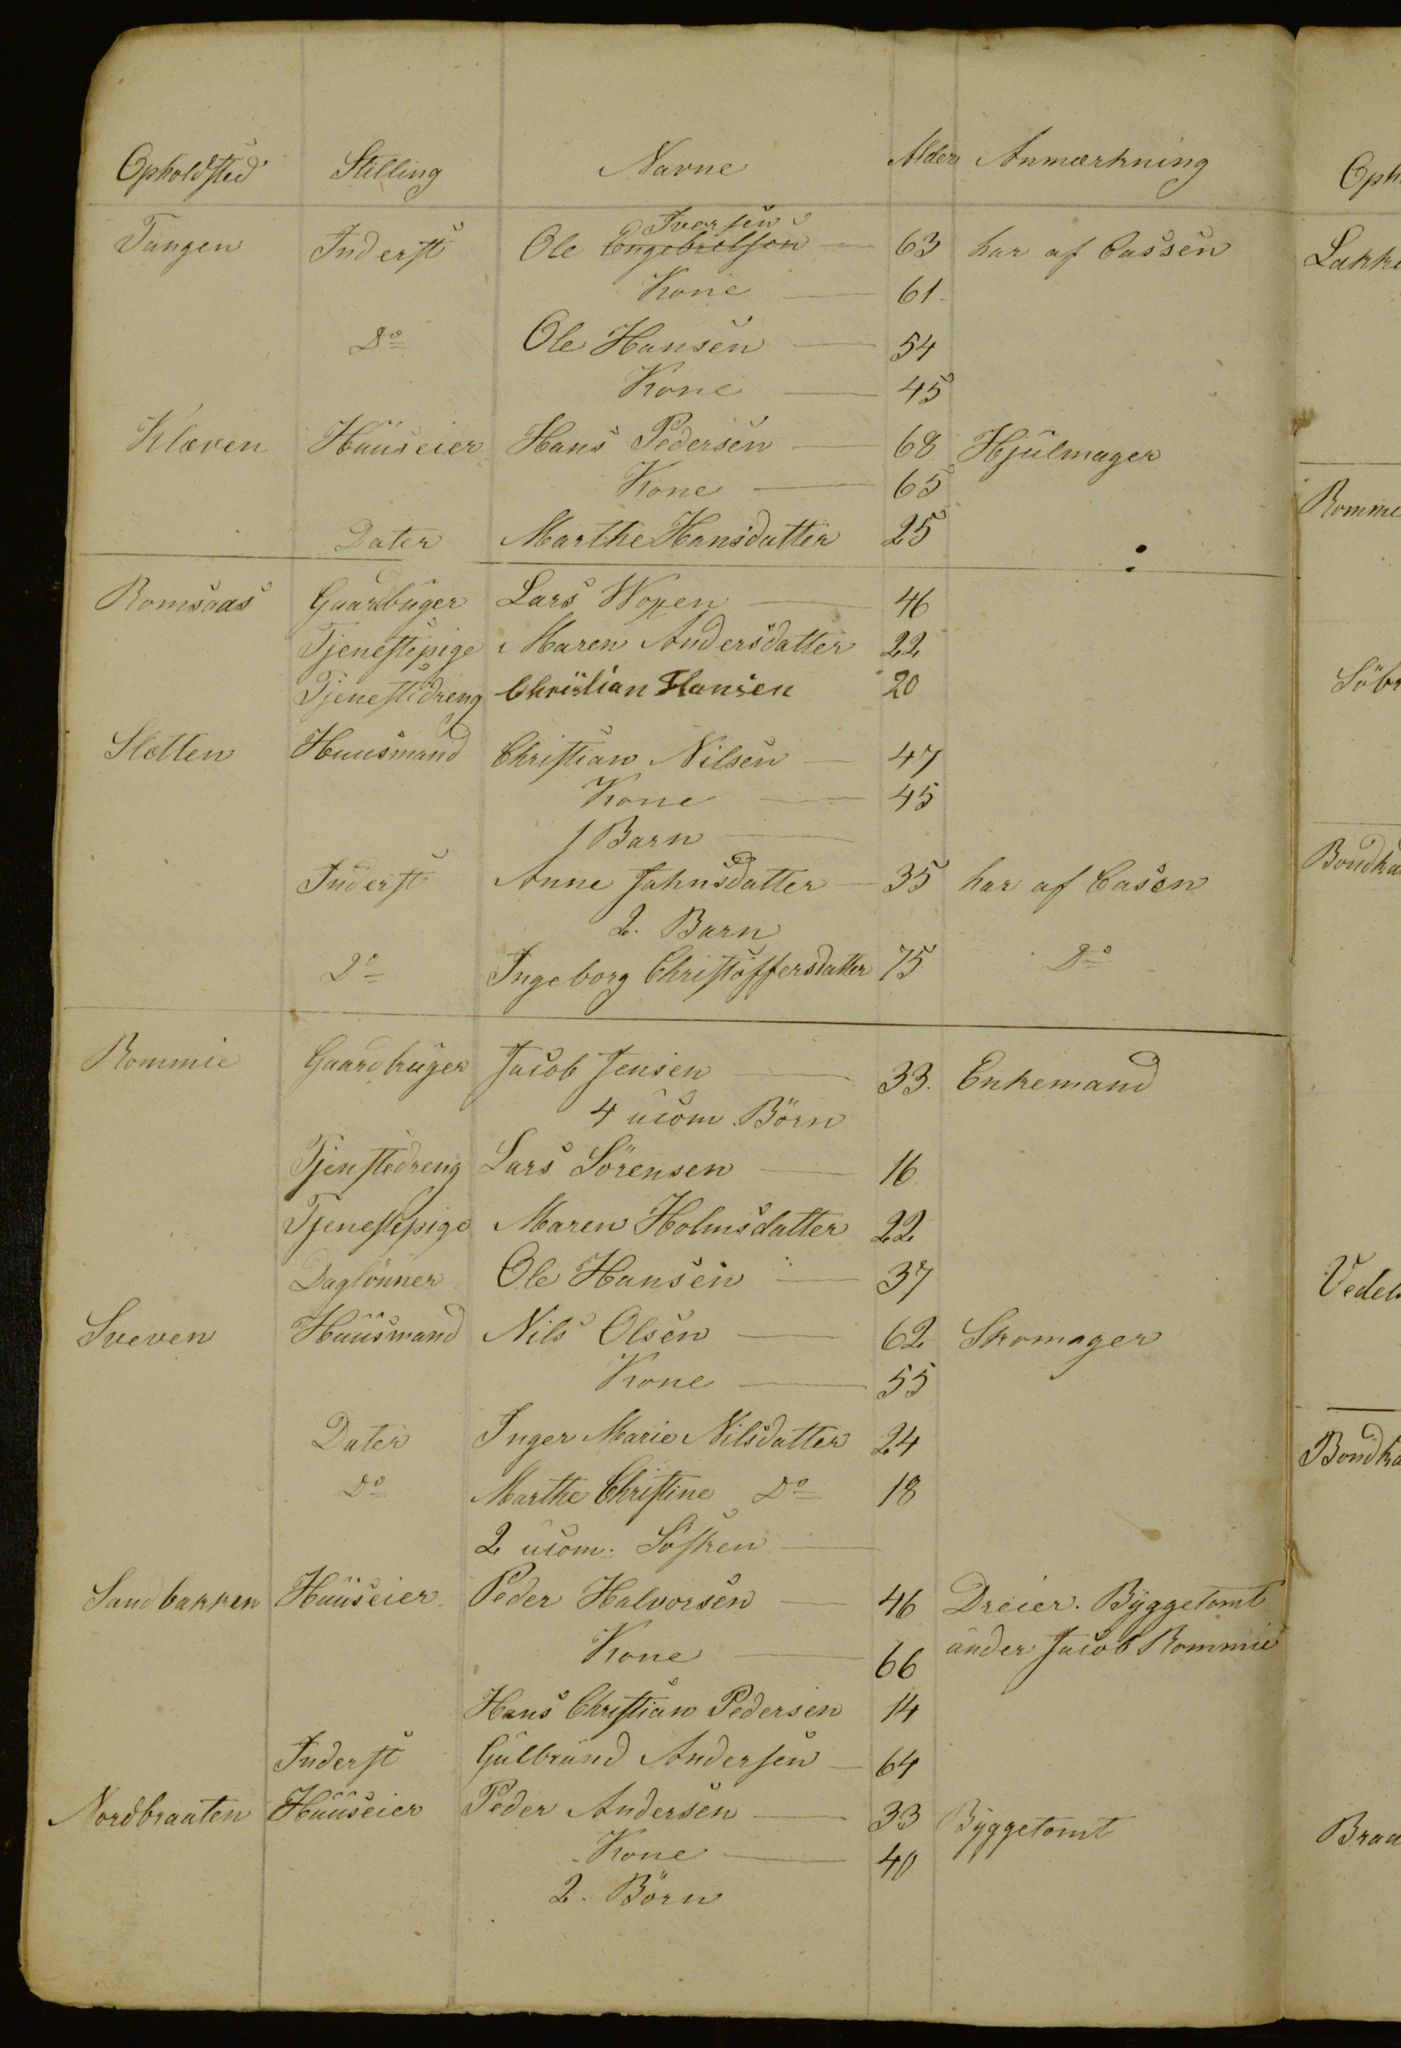 Opholdsted Stilling Navne Alder Anmærkning
Iversen
Tangen Inderst Ole Engebretsen — 63 har af Cassen
Kone — 61
Do Ole Hansen — 54
Kone — 45
Klæven Huuseier Hans Pedersen — 68 Hjulmager
Kone — 65
Dater Marthe Hansdatter 25
Romsaas Gaardbuger Lars Woxen — 46
Tjenestepige Maren Andersdatter 22
Tjenestedreng Christian Hansen 20
Sletten Huusmand Christian Nilsen — 47
Kone — 45
1 Barn —
Inderst Anne Jahnsdatter — 35 har af Casen
2. Barn
Do Ingeborg Christoffersdatter 75 Do
Rommie Gaardbruger Jacob Jensen — 33. Enkemand
4 ucom Börn
Tjenstedreng Lars Sörensen — 16
Tjenestepige Maren Holmsdatter 22
Daglönner Ole Hansen — 37
Sveven Huusmand Nils Olsen — 62 Skomager
Kone — 55
Dater Inger Marie Nilsdatter 24
Do Marthe Christine Do 18
2 ucom. Sösken —
Sandbakken Huuseier Peder Halvorsen — 46 Dreier. Byggetomt
Kone — 66 under Jacob Rommie
Hans Christian Pedersen 14
Inderst Gulbrand Andersen — 64
Nordbraaten Huuseier Peder Andersen — 33 Byggetomt
Kone — 40
2. Börn
Oph
Lakke
Romme
Söbr
Bondka
Vedels
Bondka
Braa